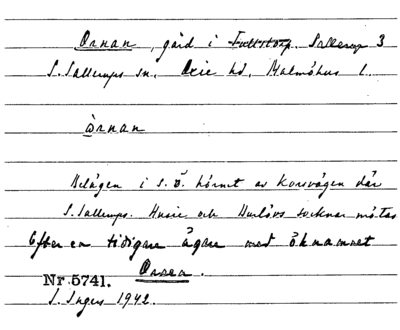 Ornan, gård i Fullstorp. Sallerup 3
S. Sallerups sn, Oxie hd, Malmöhus l.
Òrnan
Belägen i s.ö. hörnet av korsvägen där
S. Sallerups. Husie och Burlövs socknar mötas
Efter en tidigare ägare med öknamnet
Orren.
Nr 5741.
S. Ingers 1942.